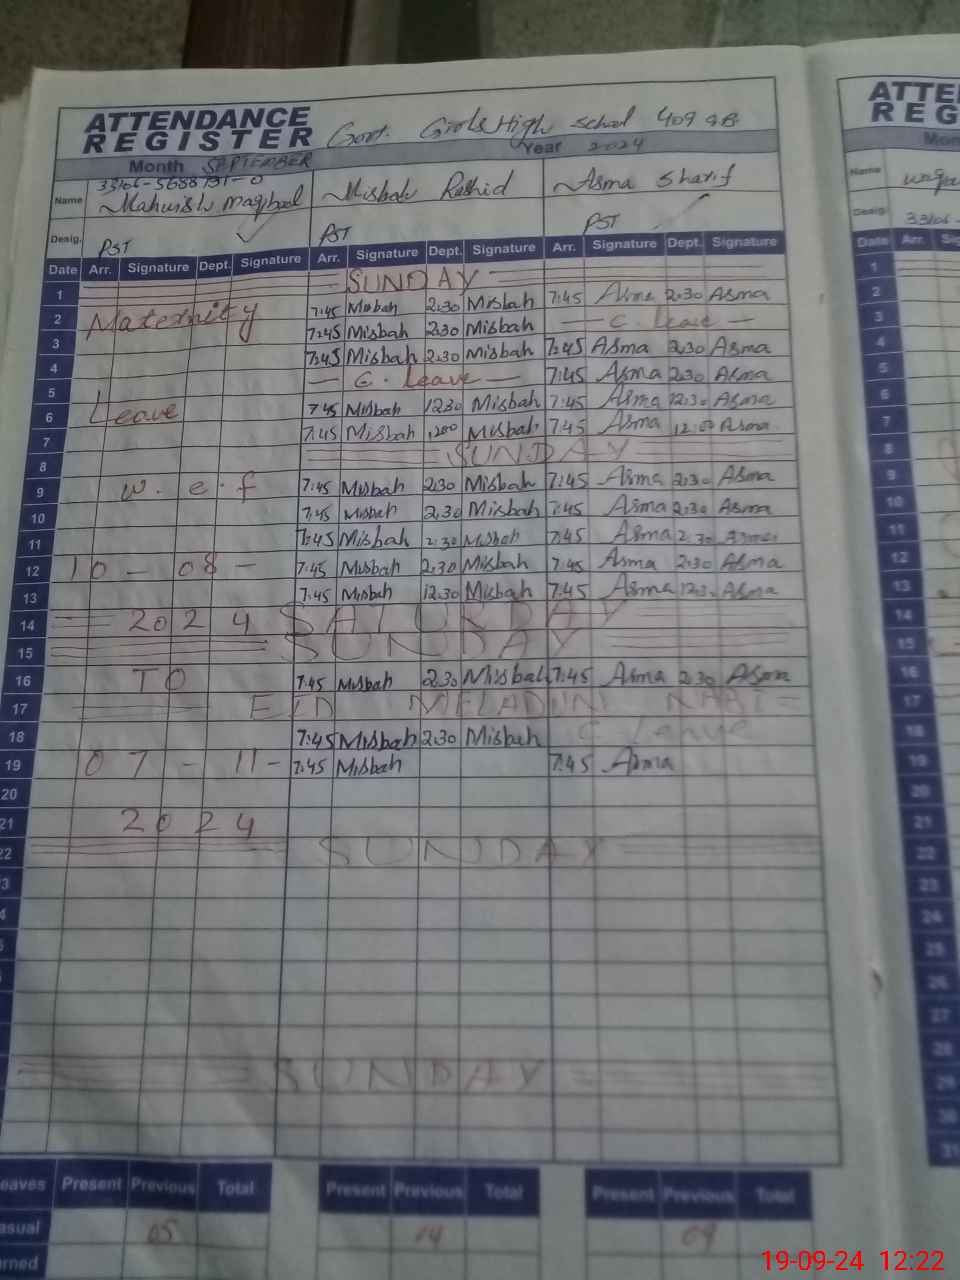 ATTENDANCE REGISTER Govt. Girls High School 409 GB
Month SEPTEMBER Year 2024
33106-5688731-0
Name Mahwish Maqbool Misbah Rashid Asma Sharif
Desig. PST PST PST
Date Arr. Signature Dept. Signature Arr. Signature Dept. Signature Arr. Signature Dept. Signature
1 SUNDAY
2 Maternity 7:45 Misbah 2:30 Misbah 7:45 Asma 2:30 Asma
3 7:45 Misbah 2:30 Misbah C. Leave
4 7:45 Misbah 2:30 Misbah 7:45 Asma 2:30 Asma
5 C. Leave 7:45 Asma 2:30 Asma
6 Leave 7:45 Misbah 12:30 Misbah 7:45 Asma 12:30 Asma
7 7:45 Misbah 1200 Misbah 7:45 Asma Asma
8 SUNDAY
9 w.e.f 7:45 Misbah 2:30 Misbah 7:45 Asma 2:30 Asma
10 7:45 Misbah 2:30 Misbah 7:45 Asma 2:30 Asma
11 7:45 Misbah 2:30 Misbah 7:45 Asma 2:30 Asma
12 10-08- 7:45 Misbah 2:30 Misbah 7:45 Asma 2:30 Asma
13 7:45 Misbah 12:30 Misbah 7:45 Asma 12:30 Asma
14 2024 SATURDAY
15 SUNDAY
16 TO 7:45 Misbah 2:30 Misbah 7:45 Asma 2:30 Asma
17 EID MELADUN NABI
18 7:45 Misbah 2:30 Misbah C Leave
19 07-11- 7:45 Misbah 7:45 Asma
20
21 2024
22 SUNDAY
SUNDAY
eaves Present Previous Total Present Previous Total Present Previous Total
asual 05 04 09
rned
ATTE
REG
Mon
Name
Desig. 3310
Date Arr.
1
2
3
4
5
6
7
8
9
10
11
12
13
14
15
16
17
18
19
20
21
22
23
24
25
26
27
28
29
30
31
19-09-24 12:22